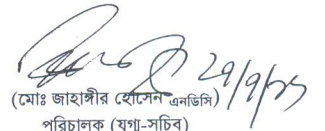 (মোঃ জাহাঙ্গীর হোসেন এনডিসি)
পরিচালক (যুগ্ম-সচিব)